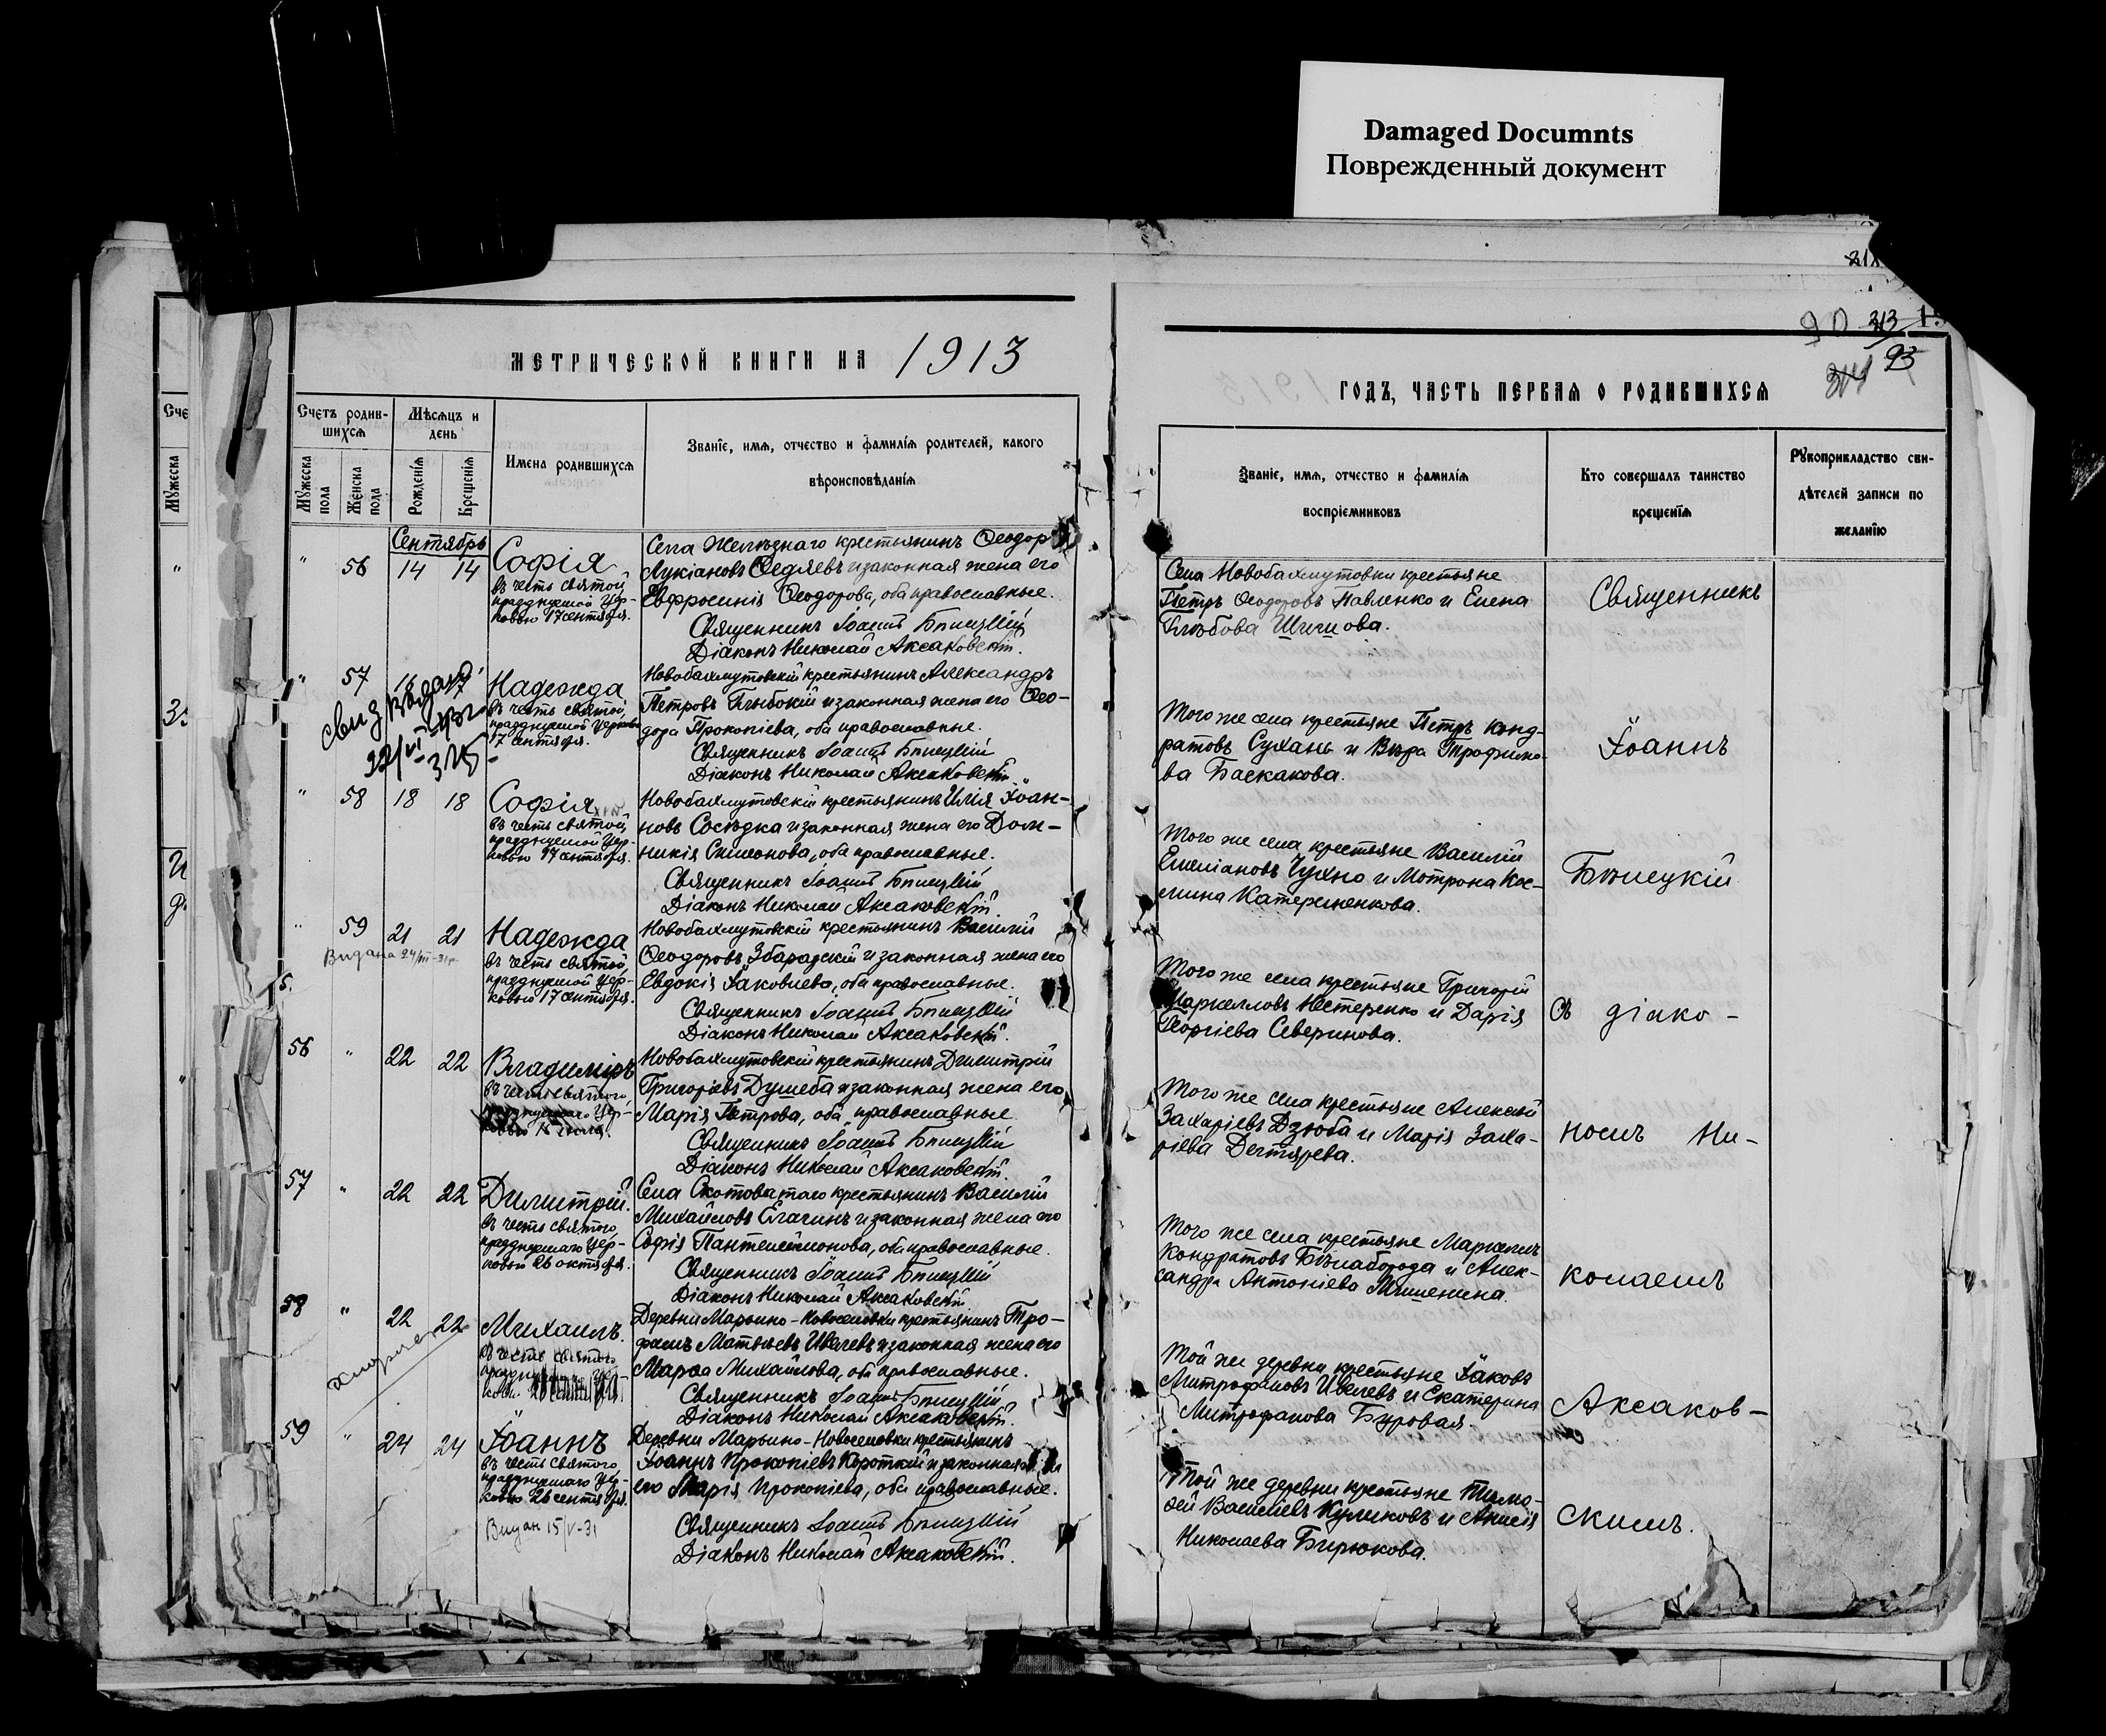 Damaged Documnts
Поврежденный документ
213
90
93
МЕТРИЧЕСКОЙ КНИГИ НА 1913
ГОДЪ, ЧАСТЬ ПЕРВАЯ О РОДИВШИХСЯ
Сче
Мужеска
Счетъ родив-
шихся
Мужеска
пола
Женска
пола
Мѣсяцъ и
день
Рожденія
Крещенія
Имена родившихся
Званіе, имя, отчество и фамилія родителей, какого
вѣроисповѣданія
Званіе, имя, отчество и фамилія
воспріемниковъ
Кто совершалъ таинство
крещенія
Рукоприкладство сви-
дѣтелей записи по
желанію
Сентябрь
" 56 14 14
Софія
въ честь святой,
празднуемой Цер-
ковью 17 сентября.
Села Желѣзнаго крестьянинъ Ѳеодоръ
Лукіановъ Ѳедяевъ и законная жена его
Евфросинія Ѳеодорова, оба православные.
Священникъ Іоаннъ Бѣлецкій
Діаконъ Николай Аксаковскій.
Села Новобахмутовки крестьяне
Петръ Ѳеодоровъ Павленко и Елена
Глѣбова Шигисова.
Священникъ
" 57 16 17
Надежда
въ честь святой,
празднуемой Церковью
17 сентября.
Новобахмутовскій крестьянинъ Александръ
Петровъ Глыбокій и законная жена его Ѳео-
дора Прокопіева, оба православные.
Священникъ Іоаннъ Бѣлецкій
Діаконъ Николай Аксаковскій.
Того же села крестьяне Петръ Конд-
ратовъ Сухань и Вѣра Трофимо-
ва Баскакова.
Іоаннъ
" 58 18 18
Софія
въ честь святой,
празднуемой Цер-
ковью 17 сентября.
Новобахмутовскій крестьянинъ Илія Іоан-
новъ Сосѣдка и законная жена его Дом-
никія Симеонова, оба православные.
Священникъ Іоаннъ Бѣлецкій
Діаконъ Николай Аксаковскій.
Того же села крестьяне Василій
Емеліановъ Чухно и Мотрона Кос-
мина Катериненкова.
Бѣлецкій
" 59 21 21
Видана 24/III-31г
Надежда
въ честь святой,
празднуемой Цер-
ковью 17 сентября.
Новобахмутовскій крестьянинъ Василій
Ѳеодоровъ Збарадскій и законная жена его
Евдокія Іаковлева, оба православные.
Священникъ Іоаннъ Бѣлецкій
Діаконъ Николай Аксаковскій.
Того же села крестьяне Григорій
Маркелловъ Нестеренко и Дарія
Георгіева Северинова.
съ діако-
56 " 22 22
Владиміръ
въ честь святого,
празднуемаго Цер-
ковью 15 іюля.
Новобахмутовскій крестьянинъ Димитрій
Григоріевъ Душеба и законная жена его
Марія Петрова, оба православные.
Священникъ Іоаннъ Бѣлецкій
Діаконъ Николай Аксаковскій.
Того же села крестьяне Алексій
Захаріевъ Дзюба и Марія Заха-
ріева Дегтярева.
номъ Ни-
57 " 22 22
Димитрій.
въ честь святого,
празднуемаго Цер-
ковью 26 октября.
Села Скотоватаго крестьянинъ Василій
Михайловъ Елагинъ и законная жена его
Софія Пантелеимонова, оба православные.
Священникъ Іоаннъ Бѣлецкій
Діаконъ Николай Аксаковскій.
Того же села крестьяне Маркеллъ
Кондратовъ Бѣлаборода и Алек-
сандра Антоніева Мишенина.
колаемъ
58 " 22 22
Михаилъ.
въ честь святого
Деревни Марьино-Новоселовки крестьянинъ Тро-
фимъ Матѳеевъ Ивлевъ и законная жена его
Марѳа Михайлова, оба православные.
Священникъ Іоаннъ Бѣлецкій
Діаконъ Николай Аксаковскій.
Той же деревни крестьяне Іаковъ
Митрофановъ Ивлевъ и Екатерина
Митрофанова Буровая
Аксаков-
59 " 24 24
Іоаннъ
въ честь святого
празднуемаго Цер-
ковью 26 сентября.
Видан 15/V-31
Деревни Марьино-Новоселовки крестьянинъ
Іоаннъ Прокопіевъ Короткій и законная
его Марія Прокопіева, оба православные.
Священникъ Іоаннъ Бѣлецкій
Діаконъ Николай Аксаковскій.
Той же деревни крестьяне Тимо-
ѳей Василіевъ Куликовъ и Анисія
Николаева Бирюкова.
скимъ.